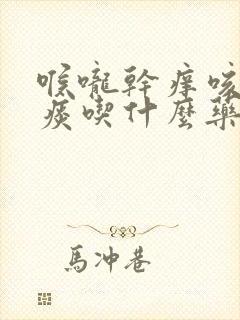 喉嚨幹癢咳
痰喫什麼藥
馬沖巷